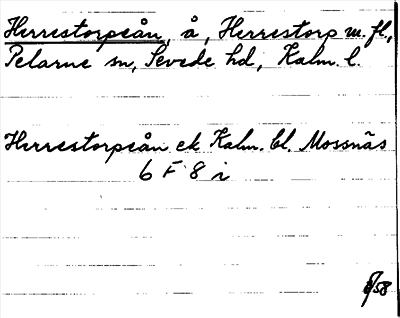 Herrestorpsån, å, Herrestorp m. fl.,
Pelarne sn, Sevede hd, Kalm. l.
Herrestorpsån ek Kalm. bl. Mossnäs
6 F 8 i
58